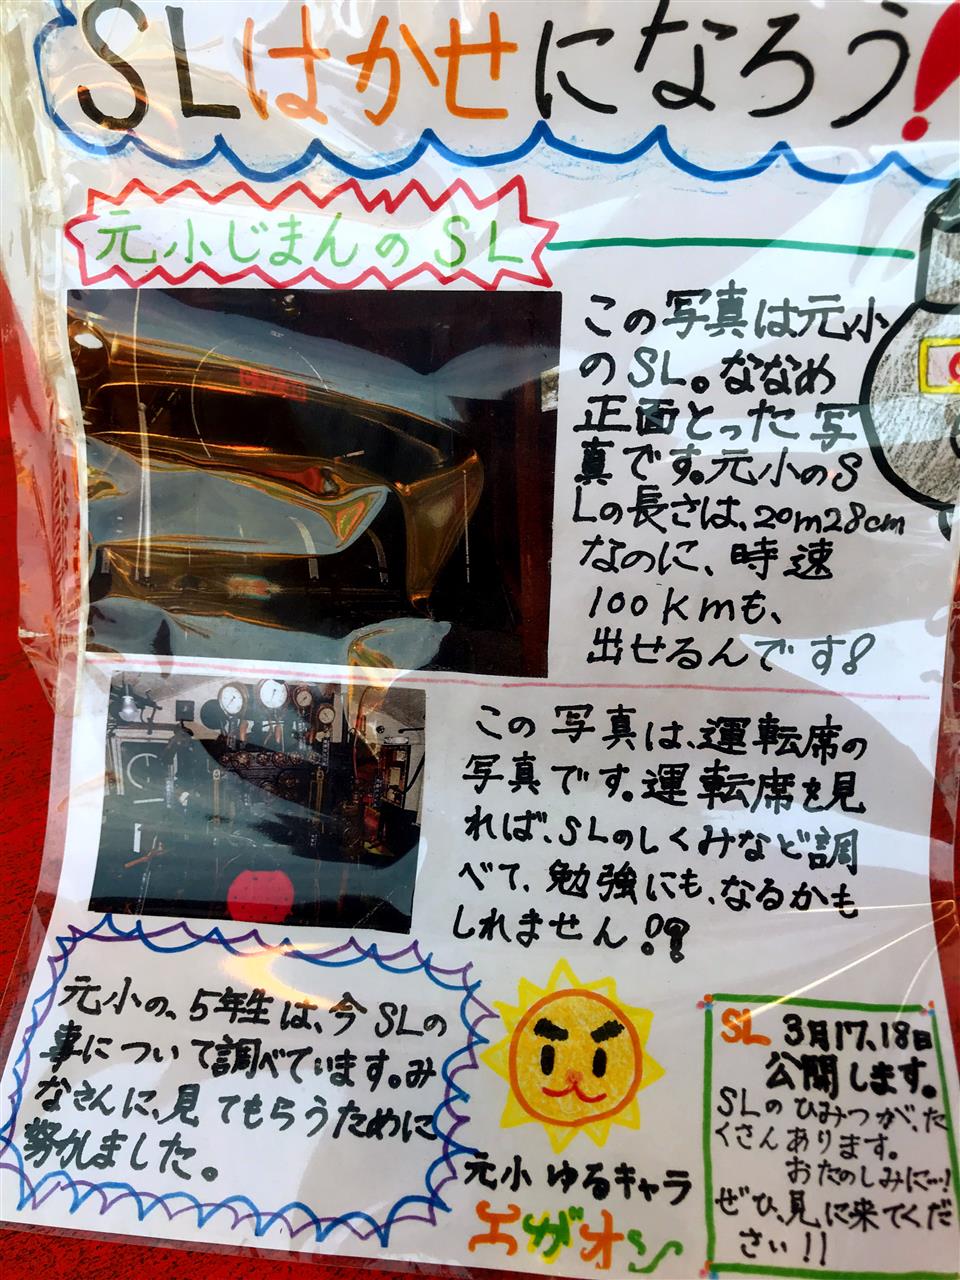 SLはかせになろう!
元小じまんのSL
この写真は元小
のSL。ななめ
正面とった写
真です。元小のS
Lの長さは、20m28cm
なのに、時速
100kmも、
出せるんです!
この写真は、運転席の
写真です。運転席を見
れば、SLのしくみなど調
べて、勉強にも、なるかも
しれません!?
元小の、5年生は、今SLの
事について調べています。み
なさんに、見てもらうために
努力しました。
元小ゆるキャラ
エガオン
SL 3月17、18日
公開します。
SLのひみつが、た
くさんあります。
おたのしみに…!
ぜひ、見に来てくだ
さい!!